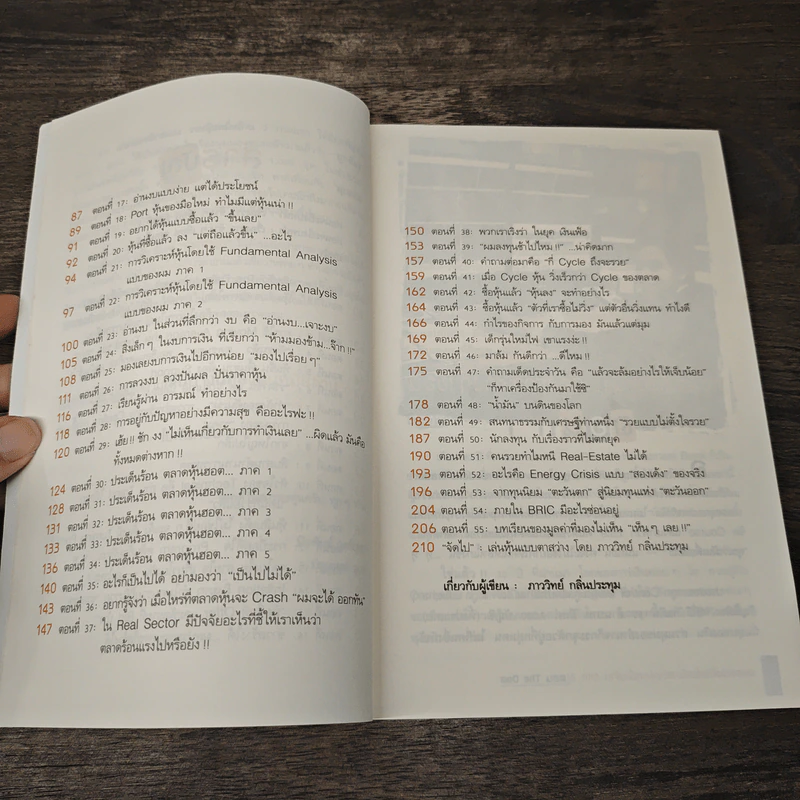 87 ตอนที่ 17: อ่านงบแบบง่าย แต่ได้ประโยชน์
89 ตอนที่ 18: Port หุ้นของมือใหม่ ทำไมมีแต่หุ้นเน่า !!
91 ตอนที่ 19: อยากได้หุ้นแบบซื้อแล้ว "ขึ้นเลย"
92 ตอนที่ 20: หุ้นที่ซื้อแล้ว ลง "แต่ถือแล้วขึ้น" ...อะไร
94 ตอนที่ 21: การวิเคราะห์หุ้นโดยใช้ Fundamental Analysis
แบบของผม ภาค 1
97 ตอนที่ 22: การวิเคราะห์หุ้นโดยใช้ Fundamental Analysis
แบบของผม ภาค 2
100 ตอนที่ 23: อ่านงบ ในส่วนที่ลึกกว่า งบ คือ "อ่านงบ...เจาะงบ"
105 ตอนที่ 24: สิ่งเล็กๆ ในงบการเงิน ที่เรียกว่า "ห้ามมองข้าม...จ๊ก !!
108 ตอนที่ 25: มองเลยงบการเงินไปอีกหน่อย "มองไปเรื่อยๆ"
111 ตอนที่ 26: การลวงงบ ลวงปันผล ปั่นราคาหุ้น
116 ตอนที่ 27: เรียนรู้ผ่าน อารมณ์ ทำอย่างไร
118 ตอนที่ 28: การอยู่กับปัญหาอย่างมีความสุข คืออะไรฟะ !!
120 ตอนที่ 29: เฮ้ย!! ชัก งง "ไม่เห็นเกี่ยวกับการทำเงินเลย" ...ผิดแล้ว มันคือ
ทั้งหมดต่างหาก !!
124 ตอนที่ 30: ประเด็นร้อน ตลาดหุ้นฮอต... ภาค 1
128 ตอนที่ 31: ประเด็นร้อน ตลาดหุ้นฮอต... ภาค 2
131 ตอนที่ 32: ประเด็นร้อน ตลาดหุ้นฮอต... ภาค 3
133 ตอนที่ 33: ประเด็นร้อน ตลาดหุ้นฮอต... ภาค 4
136 ตอนที่ 34: ประเด็นร้อน ตลาดหุ้นฮอต... ภาค 5
140 ตอนที่ 35: อะไรก็เป็นไปได้ อย่ามองว่า "เป็นไปไม่ได้"
143 ตอนที่ 36: อยากรู้จังว่า เมื่อไหร่ที่ตลาดหุ้นจะ Crash "ผมจะได้ ออกทัน"
147 ตอนที่ 37: ใน Real Sector มีปัจจัยอะไรที่ชี้ให้เราเห็นว่า
ตลาดร้อนแรงไปหรือยัง !!
150 ตอนที่ 38: พวกเราเริงร่า ในยุค เงินเฟ้อ
153 ตอนที่ 39: "ผมลงทุนช้าไปไหม !!" ...น่าคิดมาก
157 ตอนที่ 40: คำถามต่อมาคือ "กี่ Cycle ถึงจะรวย"
159 ตอนที่ 41: เมื่อ Cycle หุ้น วิ่งเร็วกว่า Cycle ของตลาด
162 ตอนที่ 42: ซื้อหุ้นแล้ว "หุ้นลง" จะทำอย่างไร
164 ตอนที่ 43: ซื้อหุ้นแล้ว "ตัวที่เราซื้อไม่วิ่ง" แต่ตัวอื่นวิ่งแทน ทำไงดี
166 ตอนที่ 44: กำไรของกิจการ กับการมอง มันแล้วแต่มุม
169 ตอนที่ 45: เด็กรุ่นใหม่ไฟ เขาแรงง่ะ !!
172 ตอนที่ 46: มาล้ม กันดีกว่า ...ดีไหม !!
175 ตอนที่ 47: คำถามเด็ดประจำวัน คือ "แล้วจะล้มอย่างไรให้เจ็บน้อย"
"ก็หาเครื่องป้องกันมาใช้ซิ"
178 ตอนที่ 48: "น้ำมัน" บนดินของโลก
182 ตอนที่ 49: สนทนาธรรมกับเศรษฐีท่านหนึ่ง "รวยแบบไม่ตั้งใจรวย"
187 ตอนที่ 50: นักลงทุน กับเรื่องราวที่ไม่ตกยุค
190 ตอนที่ 51: คนรวยทำไมหนี Real-Estate ไม่ได้
193 ตอนที่ 52: อะไรคือ Energy Crisis แบบ "สองเด้ง" ของจริง
196 ตอนที่ 53: จากทุนนิยม "ตะวันตก" สู่นิยมทุนแห่ง "ตะวันออก"
204 ตอนที่ 54: ภายใน BRIC มีอะไรซ่อนอยู่
206 ตอนที่ 55: บทเรียนของมูลค่าที่มองไม่เห็น "เห็นๆ เลย !!"
210 "จัดไป" : เล่นหุ้นแบบตาสว่าง โดย ภาววิทย์ กลิ่นประทุม
เกี่ยวกับผู้เขียน : ภาววิทย์ กลิ่นประทุม